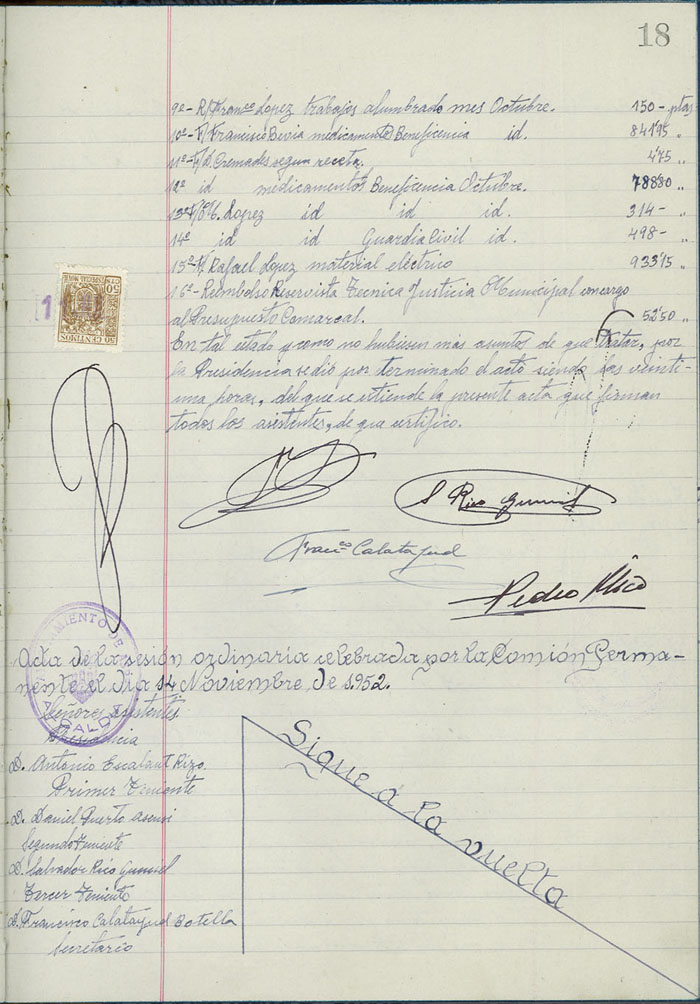 18
9º- R/ Franco Lopez trabajos alumbrado mes Octubre. 150- ptas
10º- F/ Francisco Bevia medicamentos Beneficencia id. 841'95 "
11º- F/ Cremades segun receta. 4'75 "
12º id medicamentos Beneficencia Octubre. 788'80 "
13º F/ Lopez id id id. 314- "
14º id id Guardia Civil id. 498- "
15º F/ Rafael Lopez material eléctrico 933'15 "
16º- Reembolso Reservista Tecnica Justicia Municipal con cargo
al Presupuesto Comarcal. 52'50 "
En tal estado y como no hubiesen más asuntos de que tratar, por
la Presidencia se dio por terminado el acto siendo las veinti-
una horas, del que se extiende la presente acta que firman
todos los asistentes, de que certifico.
50 CENTIMOS
ESPECIAL MOVIL
1
S. Rico Gumiel
Franco Calatayud
Pedro Rico
Acta de la sesión ordinaria celebrada por la Comión Perma-
nente el día 14 Noviembre de 1.952.
AMIENTO DE
ALCALDIA
Señores asistentes
Presidencia
D. Antonio Escalant Rizo
Primer Teniente
D. Daniel Puerto Asensi
Segundo Teniente
D. Salvador Rico Gumiel
Tercer Teniente
D. Francisco Calatayud Botella
Secretario
Sigue á la vuelta